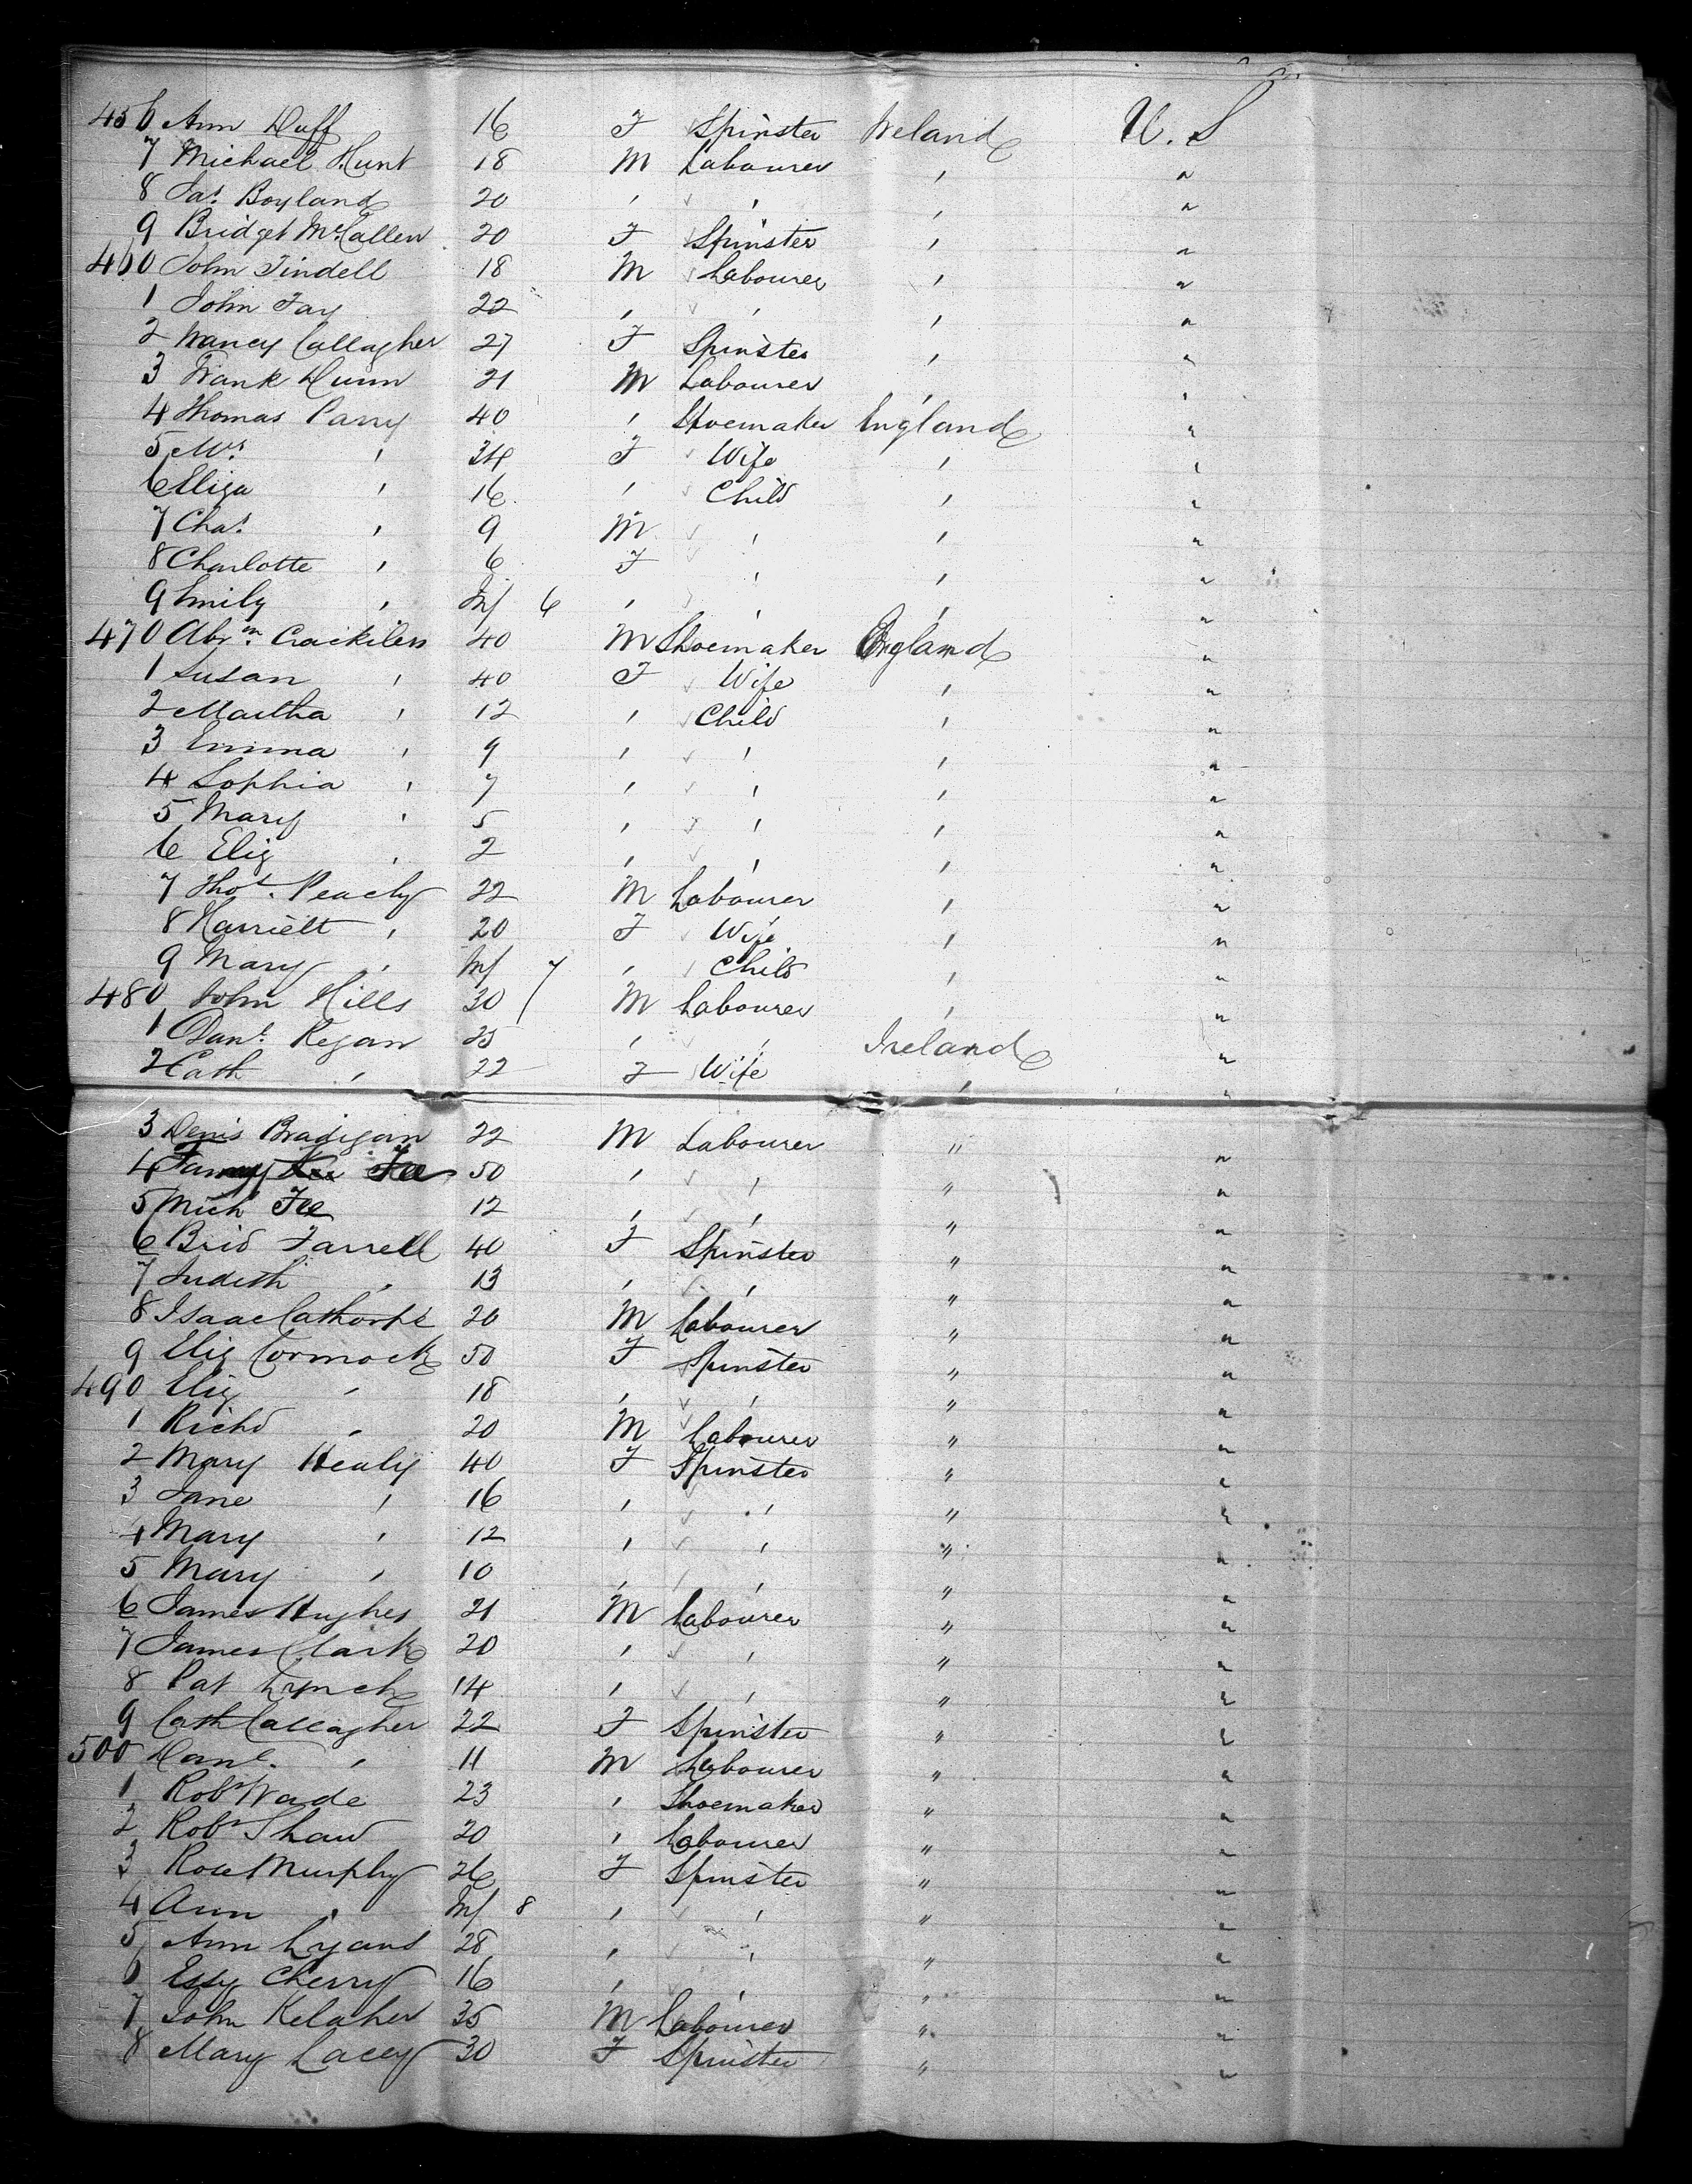 456 Ann Duff 16 F Spinster Ireland U. S
7 Michael Hunt 18 M Labourer , "
8 Jas. Boyland 20 , , , "
9 Bridget McCallen 20 F Spinster , "
460 John Tindell 18 M Labourer , "
1 John Fay 22 , , , "
2 Nancy Callagher 27 F Spinster , "
3 Frank Dunn 21 M Labourer , "
4 Thomas Parry 40 , Shoemaker England "
5 Mrs , 34 F Wife , "
6 Eliza , 16 , Child , "
7 Chas. , 9 M , , "
8 Charlotte , 6 F , , "
9 Emily , Inf 6 , , , "
470 Abrm. 40 M Shoemaker England "
1 Susan , 40 F Wife , "
2 Martha , 12 , Child , "
3 Emma , 9 , , , "
4 Sophia , 7 , , , "
5 Mary , 5 , , , "
6 Eliz , 2 , , , "
7 Thos. Peachy 22 M Labourer , "
8 Harriett , 20 F Wife , "
9 Mary , Inf 7 , Child , "
480 John Hills 30 M Labourer , "
1 Danl. Regan 25 , , Ireland "
2 Cath , 22 F Wife , "
3 Denis Bradigan 22 M Labourer " "
4 Fee 50 , , " "
5 Mich Fee 12 , , " "
6 Brid Farrell 40 F Spinster " "
7 Judith , 13 , , " "
8 Isaac Cathorpe 20 M Labourer " "
9 Eliz Cormack 50 F Spinster " "
490 Eliz , 18 , , " "
1 Richd , 20 M Labourer " "
2 Mary Healy 40 F Spinster " "
3 Jane , 16 , , " "
4 Mary , 12 , , " "
5 Mary , 10 , , " "
6 James Hughes 21 M Labourer " "
7 James Clark 20 , , " "
8 Pat Lynch 14 , , " "
9 Cath Callagher 22 F Spinster " "
500 Danl. , 11 M Labourer " "
1 Robt Wade 23 , Shoemaker " "
2 Robt Shaw 20 , Labourer " "
3 Rose Murphy 26 F Spinster " "
4 Ann , Inf 8 , , " "
5 Ann Lyans 28 , , " "
6 Essy Cherry 16 , , " "
7 John Kelaher 35 M Labourer " "
8 Mary Lacey 30 F Spinster " "